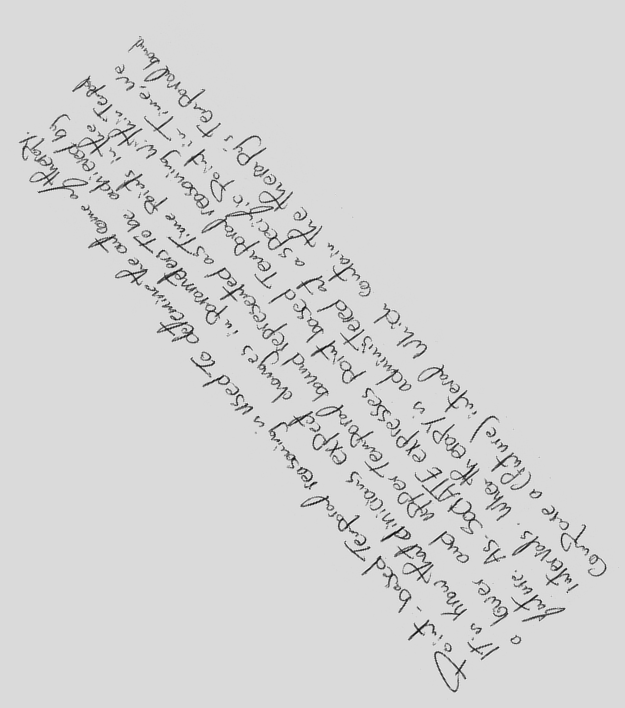 Point-based Temporal reasoning is used To determine the outcome of therapy.
It is know that clinicians expect changes in parameters To be achieved by
a lower and upper Temporal bound represented as Time points in the
future. As-SOCIATE expresses Point based Temporal reasoning within
intervals. When therapy is administered at a specific Point in Time, we
Compose a (future) interval which contain the therapy's Temporal bound.